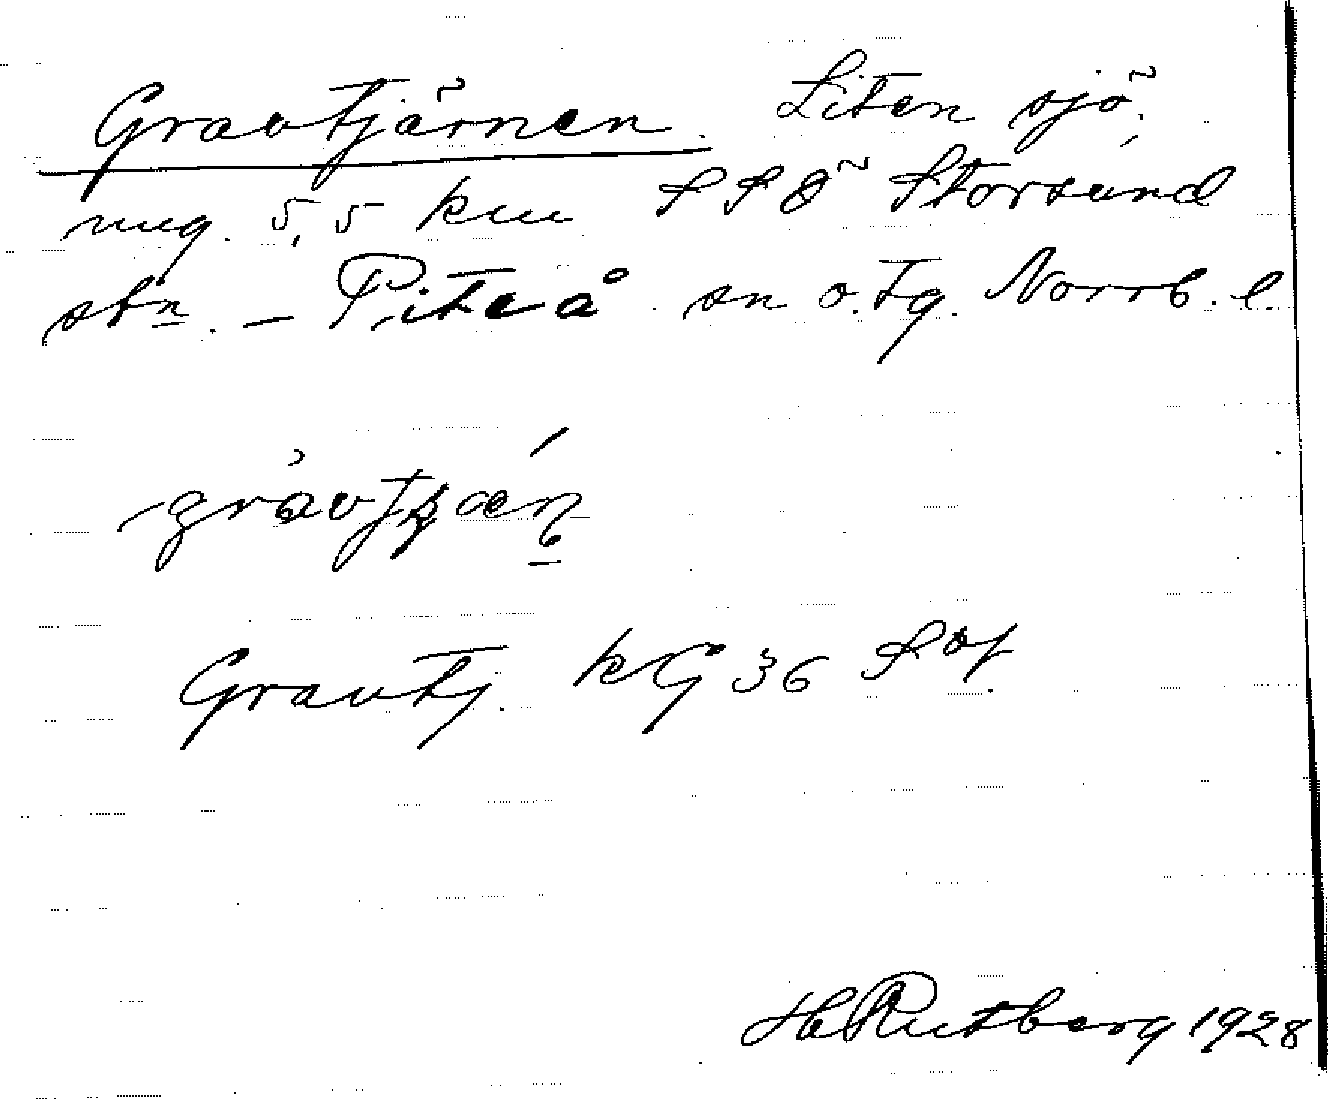 Gravtjärnen. Liten sjö,
ung. 5,5 km SSÖ Storsund
stn. – Piteå sn o. tg. Norrb. l.
Gravtj. kG 36 Söf
H Rutberg 1928